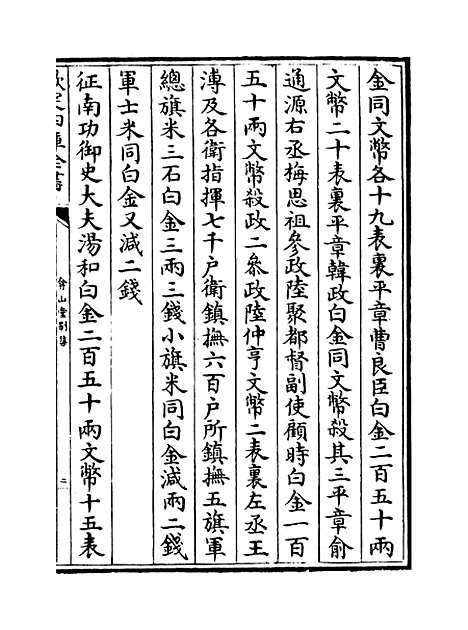 金同文幣各十九表裏平章曹良臣白金二百五十兩
文幣二十表裏平章韓政白金同文幣殺其三平章俞
通源右丞梅思祖參政陸聚都督副使顧時白金一百
五十兩文幣殺政二叅政陸仲亨文幣二表裏左丞王
溥及各衛指揮七千户衛鎮撫六百户所鎮撫五旗軍
總旗米三石白金三兩三錢小旗米同白金減兩二錢
軍士米同白金又減二錢
征南功御史大夫湯和白金二百五十兩文幣十五表
欽定四庫全書
弇山堂别集
二